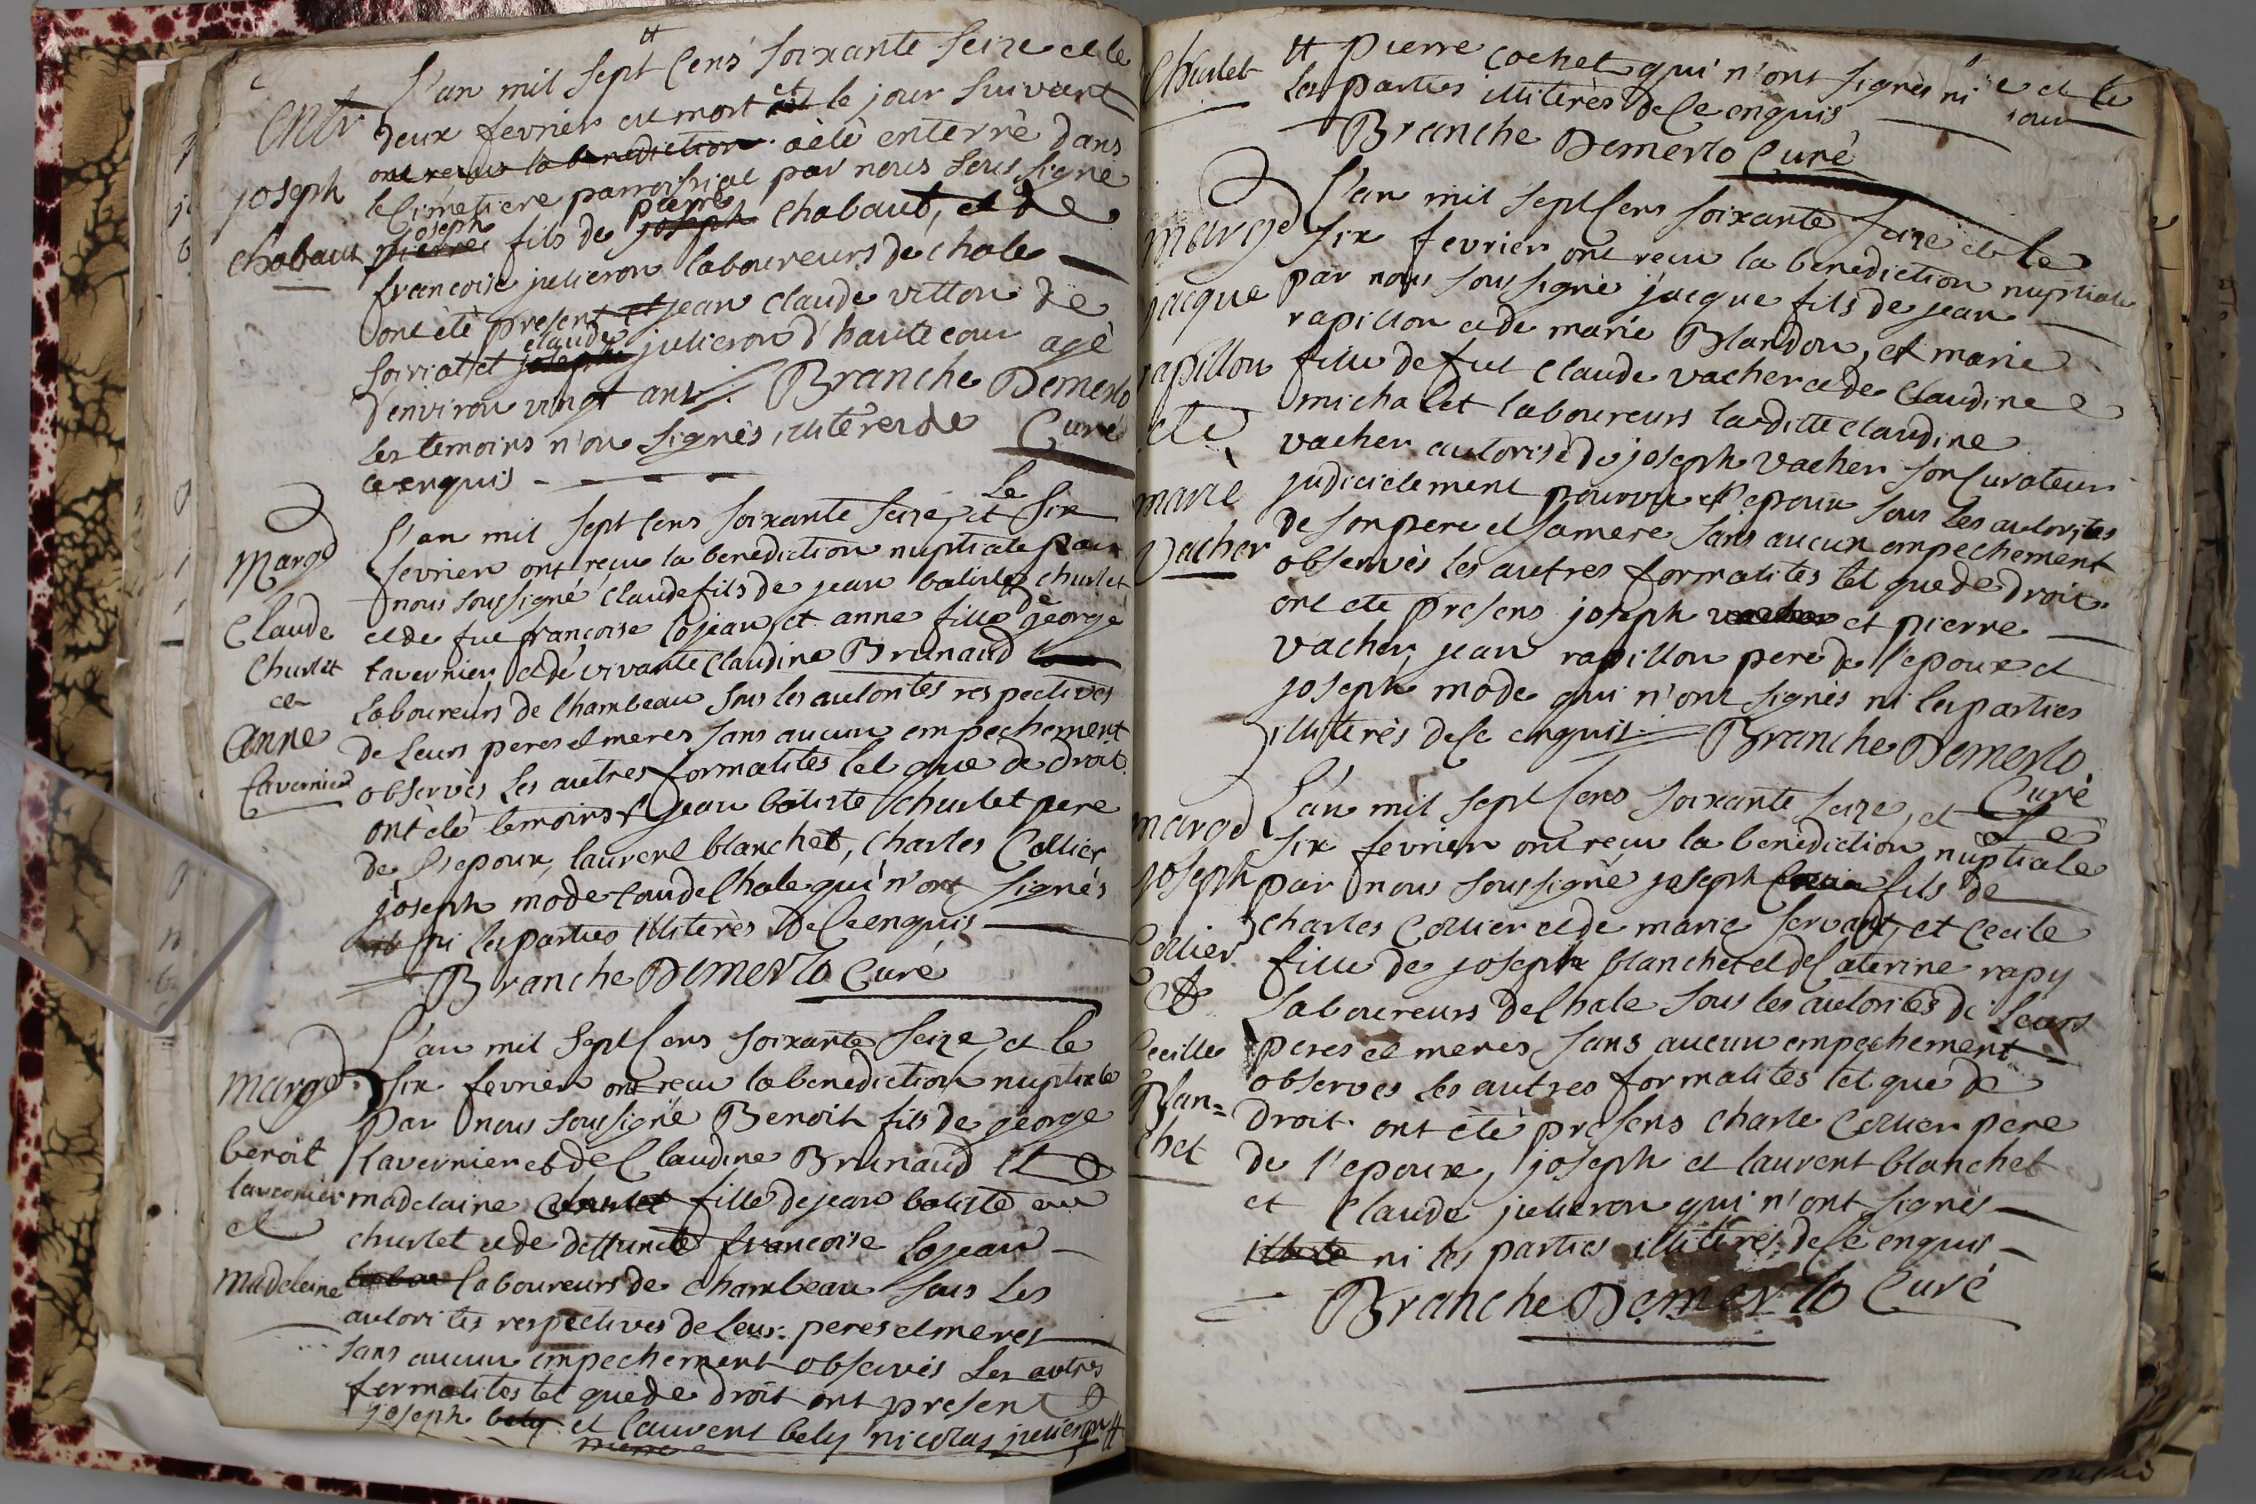 L'an mil sept cens soixante seize et le
deux fevrier est mort et le jour suivant
ont reçus la benediction a èté enterrè dans
le Cimetiere parroissial par nous sous signe
joseph pierre
pierre fils de joseph Chabaut, et de
françoise julieron laboureurs de chale
ont èté present et jean claude vitton de
claude
soiriat et joseph julieron d'hautecour agè
d'environ vingt ans Branche Demerlo
les temoins n'on signès illiteres de Curé
ce enquis
entr
joseph
chabaut
Le
L'an mil sept cens soixante seize, et six
fevrier ont reçu la benediction nuptiale par
nous soussigné claude fils de jean batiste churlet
et de fue françoise lojean, et anne fille de george
tavernier et de vivante claudine Brunaud
laboureurs de Chambeau sous les autorités respectives
de leurs peres et meres sans aucun empechement
observès les autres formalites tel que de droit
ont èté temoins jean batiste churlet pere
de l'epoux, laurent blanchet, charles Collier
joseph mode tau de Chale qui n'ont signès
ni les parties illiterès de Ce enquis
Branche Demerlo Curé
marge
Claude
Churlet
et
Anne
tavernier
L'an mil sept cens soixante seize et le
six fevrier ont reçu la benediction nuptiale
par nous soussignè Benoit fils de george
tavernier et de Claudine Brunaud et
madelaine churlet fille de jean batiste
churlet et de deffuncte françoise lojean
laboureurs de chambeau sous les
autorites respectives de leurs peres et meres
sans aucun empechement observès les autres
formalites tel que de droit ont present
joseph bely et laurent bely nicolas julieron #
marge
benoit
tavernier
et
Madeleine
Churlet
# pierre cochet qui n'ont signès ni
les parties illiterès de Ce enquis
Branche Demerlo Curè
L'an mil sept Cens soixante seize et le
six fevrier ont reçu la benediction nuptiale
par nous soussignè jacque fils de jean
rapillon et de marie Blandon, et marie
fille de fut claude vacher et de Claudine
michalet laboureurs la ditte claudine
vacher autorisé de joseph vacher son Curateur
judicielement pourvu et l'epoux sous les autorites
de son pere et sa mere sans aucun empechement
observès les autres formalites tel que de droit
ont ete presens joseph vacher et pierre
vacher, jean rapillon pere de l'epoux et
joseph mode qui n'ont signès ni les parties
illiterès de Ce enquis Branche Demerlo
Curé
marge
jacque
rapillon
et
marie
Vacher
L'an mil sept Cens soixante seize, et le
six fevrier ont reçu la benediction nuptiale
par nous soussignè joseph fils de
charles Collier et de marie servant, et Cecile
fille de joseph blanchet et de Caterine rapy
laboureurs de Chale sous les autorites de leurs
peres et meres, sans aucun empechement
observes les autres formalites tel que de
droit ont èté presens charle Collier pere
de l'epoux, joseph et laurent blanchet
et Claude julieron qui n'ont signès
illiterè ni les parties illiterès de Ce enquis
Branche Demerlo Curé
marge
joseph
Collier
et
Cecille
Blan=
chet